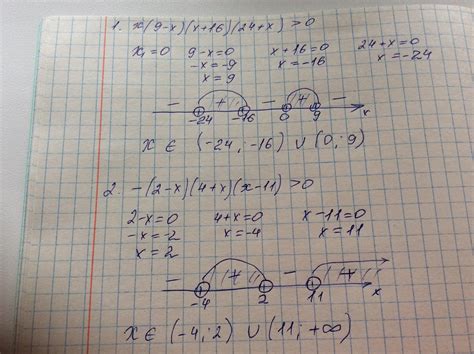 1. x(9-x)(x+16)(24+x)>0
x₁=0 9-x=0 x+16=0 24+x=0
-x=-9 x=-16 x=-24
x=9
- + - + -
-24 -16 0 9 x
X ∈ (-24; -16) ∪ (0; 9)
2. -(2-x)(4+x)(x-11)>0
2-x=0 4+x=0 x-11=0
-x=-2 x=-4 x=11
x=2
- + - +
-4 2 11 x
X ∈ (-4; 2) ∪ (11; +∞)